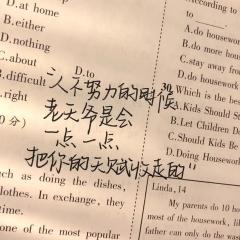 D.at home
B.either
D.nothing
C.about
D.to
B.difficult
.right
0 分)
"人不努力的时候
老天爷是会
一点一点
把你的天赋收走的"
uch as doing the dishes,
lothes. In exchange, they
time.
one of the most popular
According to
A.do housework
B.do more hou
C.stay away from
D.do housework
Which is the bes
A.Kids Should S
B.Let Children D
C.Should Kids Be
D.Doing Housework
Linda,14
My parents do 10 ho
most of the housework, lik
father can only do the was